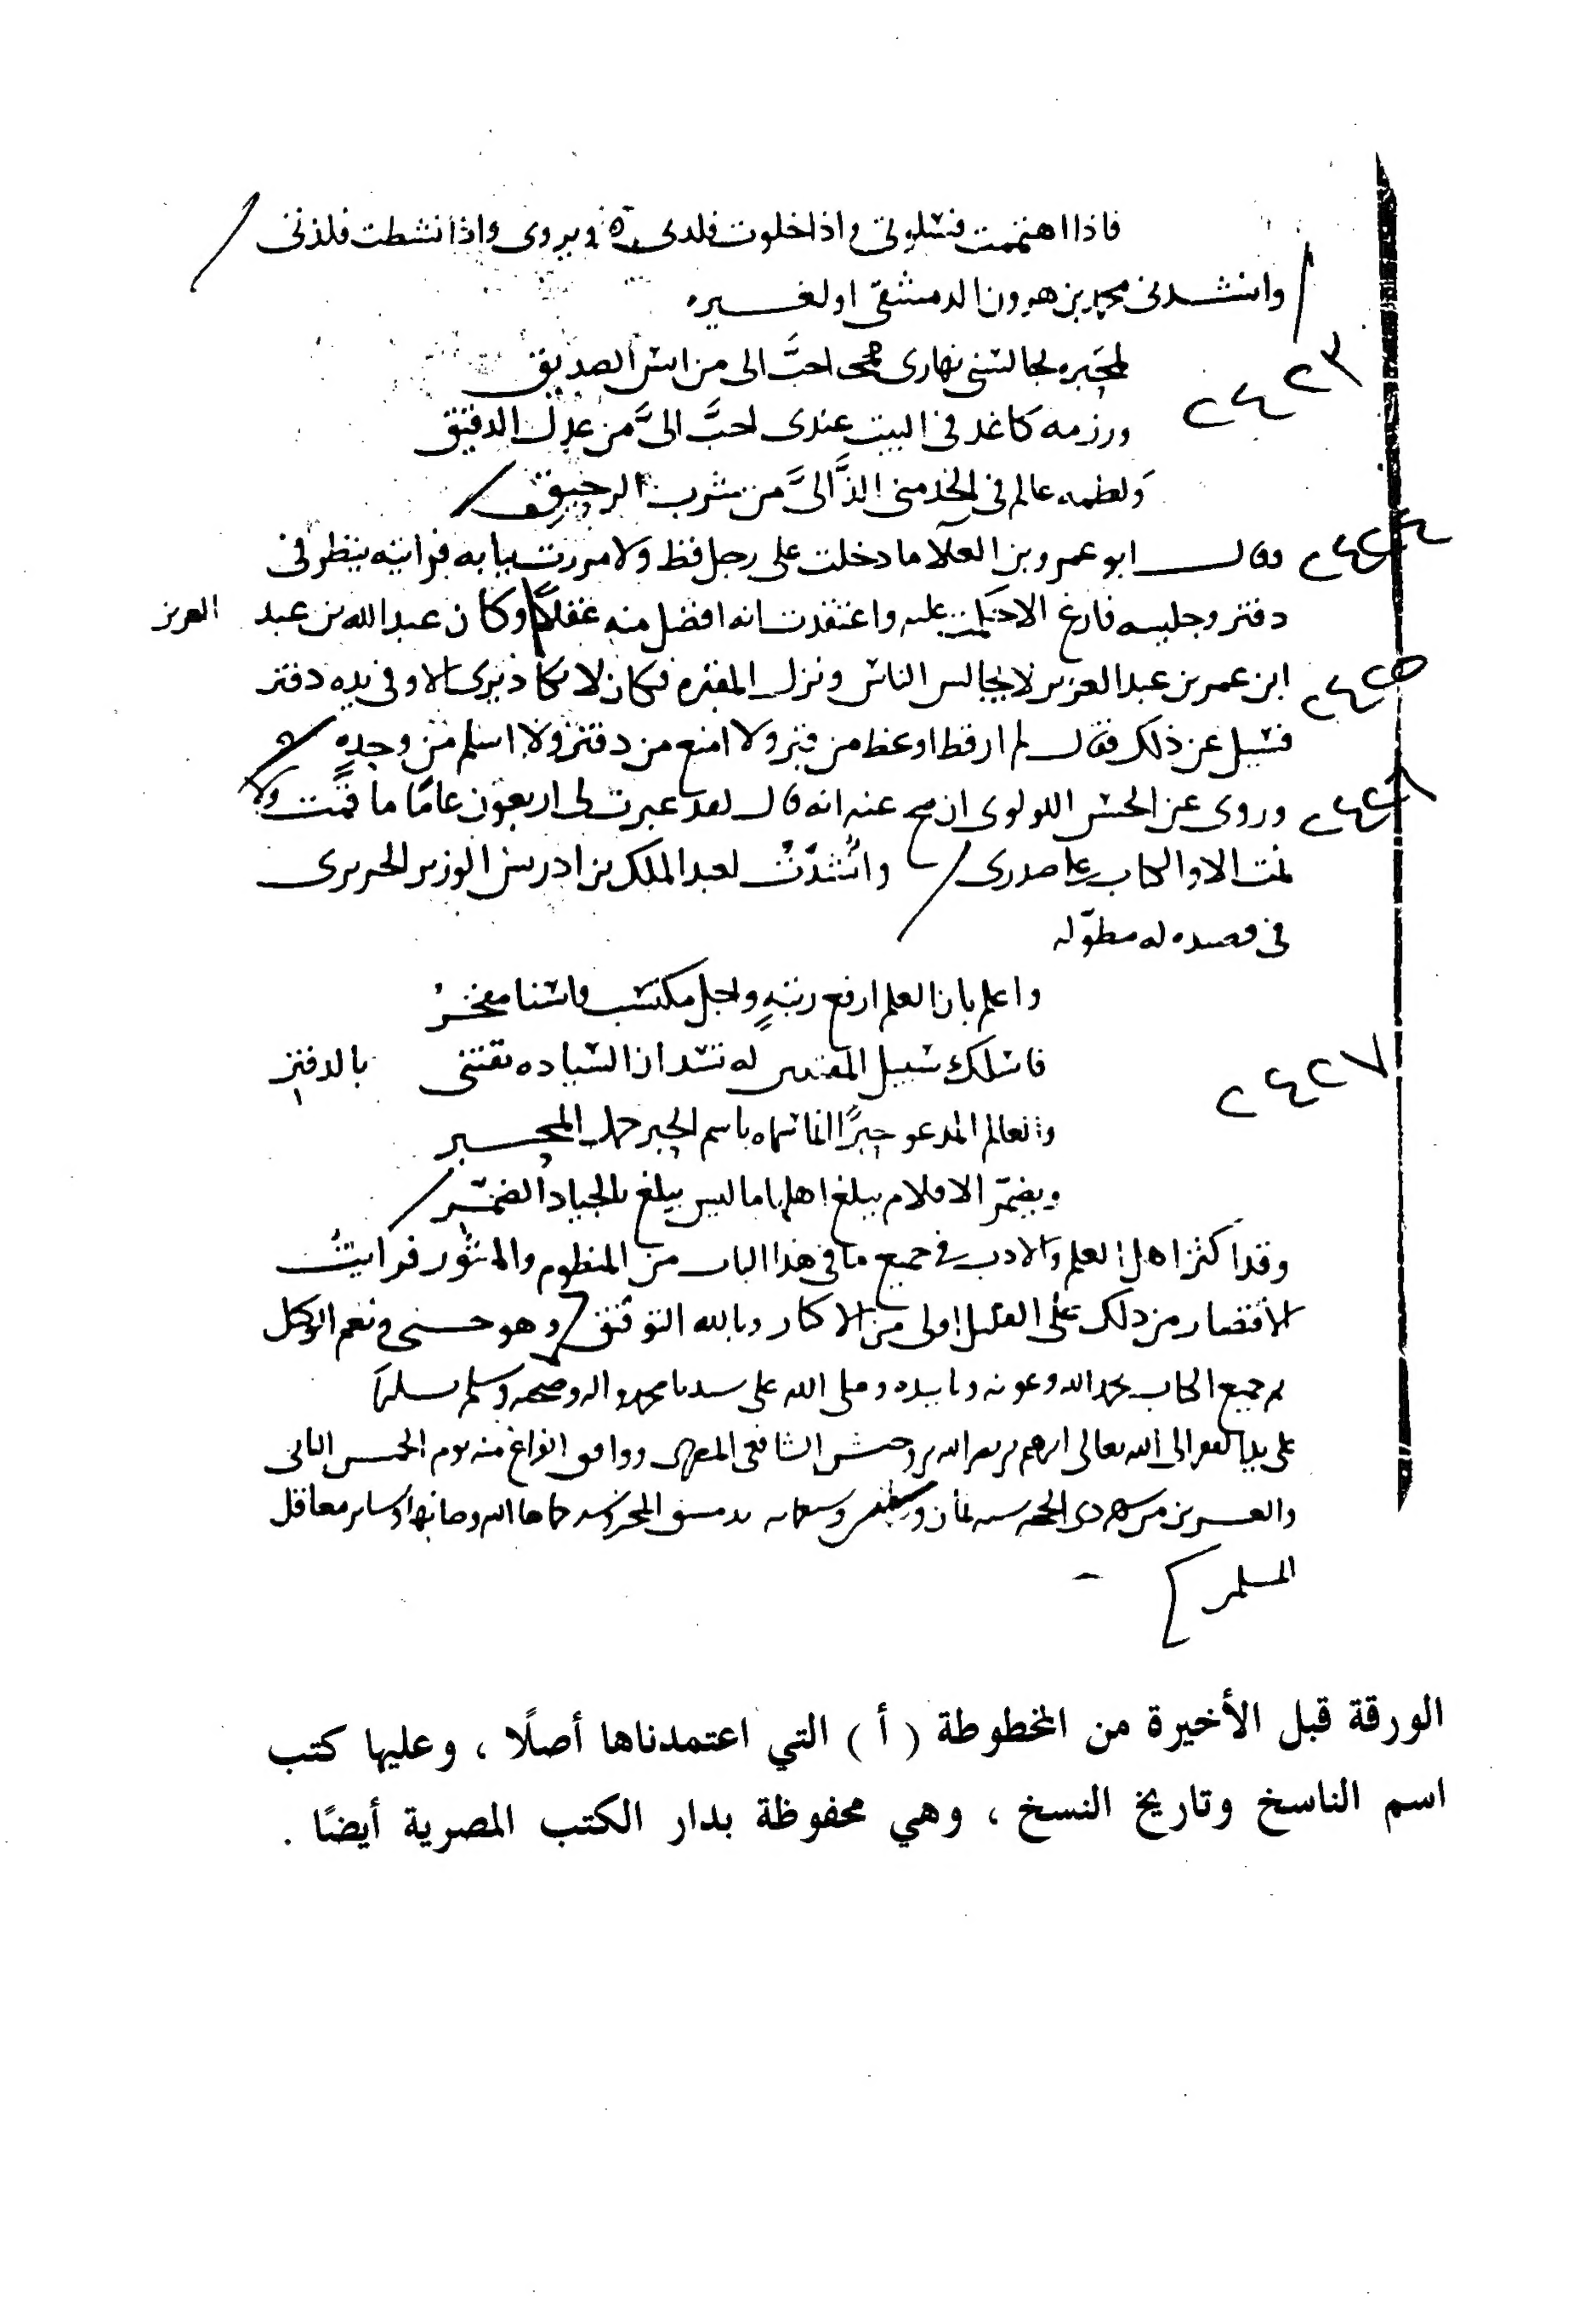 فاذا اهتممت فسلوتي واذا خلوت فلذتي ويروى واذا نشطت فلذتي
وانشدني محمد بن هرون الدمشقي او لغيره
٢٤٢٣
لمحبره تجالسني نهاري احب الي من انس الصديق
ورزمه كاغد في البيت عندي احبَّ اليَّ من عدل الدقيق
ولطمه عالم في الخد مني الذَّ اليَّ من شرب الرحيق
٢٤٢٤
وقال ابو عمرو بن العلا ما دخلت على رجل قط ولا مررت ببابه فرايته ينظر في
دفتر وجليسه فارغ الا حكمت عليه واعتقدت انه افضل منه عقلاً وكان عبد الله بن عبد العزيز
٢٤٢٥
ابن عمر بن عبد العزيز لا يجالس الناس ونزل المقبره فكان لا يكاد يرى الا وفي يده دفتر
فسيل عن ذلك فقال لم ار قط اوعظ من قبر ولا امتع من دفتر ولا اسلم من وحدهٍ
٢٤٢٦
وروى عن الحسن اللولوي ان صح عنه انه قال لقد غبرت لي اربعون عامًا ما قمت ولا
نمت الا والكتاب على صدري وانشدت لعبد الملك بن ادريس الوزير الحريري
في قصيده له مطوّله
واعلم بان العلم ارفع رتبةٍ واجل مكتسب واسنا مفخرُ
٢٤٢٧
فاسلك سبيل المقتنين له تسد ان السياده تقتنى بالدفتر
والعالم المدعو حبرًا انما سماه باسم الحبر حمل المحبر
وبضمّر الاقلام يبلغ اهلها ما ليس يبلغ بالجياد الضمّر
وقد اكثر اهل العلم والادب في جميع ما في هذا الباب من المنظوم والمنثور فرايتُ
الاقتصار من ذلك على القليل اولى من الاكثار وبالله التوفيق وهو حسبي ونعم الوكيل
تم جميع الكتاب بحمد الله وعونه وتاييده وصلى الله على سيدنا محمد واله وصحبه وسلم تسليمًا
على يد الفقير الى الله تعالى الشافعي ووافق الفراغ منه يوم الخميس الثاني
والعشرين من شهر ذي الحجه سنه ثمان وسبعمايه بدمشق المحروسه حماها الله وصانها وساير معاقل
المسلمين
الورقة قبل الأخيرة من المخطوطة ( أ ) التي اعتمدناها أصلًا ، وعليها كتب
اسم الناسخ وتاريخ النسخ ، وهي محفوظة بدار الكتب المصرية أيضًا .